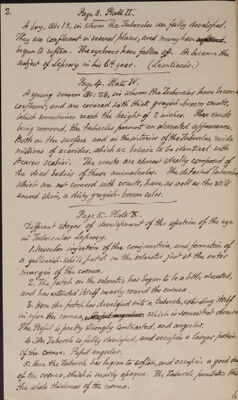 2.
Page 3. Plate II.
A boy, æt. 13, in whom the Tubercles are fully developed.
They are confluent in several places, and many have
begun to soften. The eyebrows have fallen off. He became the
subject of leprosy in his 6th year. (Leontiasis.)
Page 4. Plate IV.
A young woman æt. 28, in whom the Tubercles have become
confluent, and are covered with thick grayish-brown crusts,
which sometimes reach the height of 2 inches. These crusts
being removed, the tubercles present an ulcerated appearance.
Both on the surface and in the interior of the Tubercles, reside
millions of acarides, which we believe to be identical with
Acarus scabiei. The crusts are almost wholly composed of
the dead bodies of these animalcules. The isolated Tubercles
which are not covered with crusts, have, as well as the still
sound skin, a dirty grayish-brown color.
Page 5. Plate X.
Different stages of development of the affection of the eye
in Tubercular Leprosy.
1. Vascular injection of the conjunctiva, and formation of
a yellowish-white patch on the sclerotic, just at the outer
margin of the cornea.
2. The patch on the sclerotic has begun to be a little elevated,
and has extended itself nearly round the cornea.
3. Here the patch has developed into a tubercle, extending itself
in upon the cornea, which is somewhat obscure.
The Pupil is pretty strongly contracted, and angular.
4. The Tubercle is fully developed, and occupies a larger portion
of the cornea. Pupil angular.
5. Here the Tubercle has begun to soften, and occupies a good deal
of the cornea, which is nearly opaque. The Tubercle penetrates thro'
the whole thickness of the cornea.